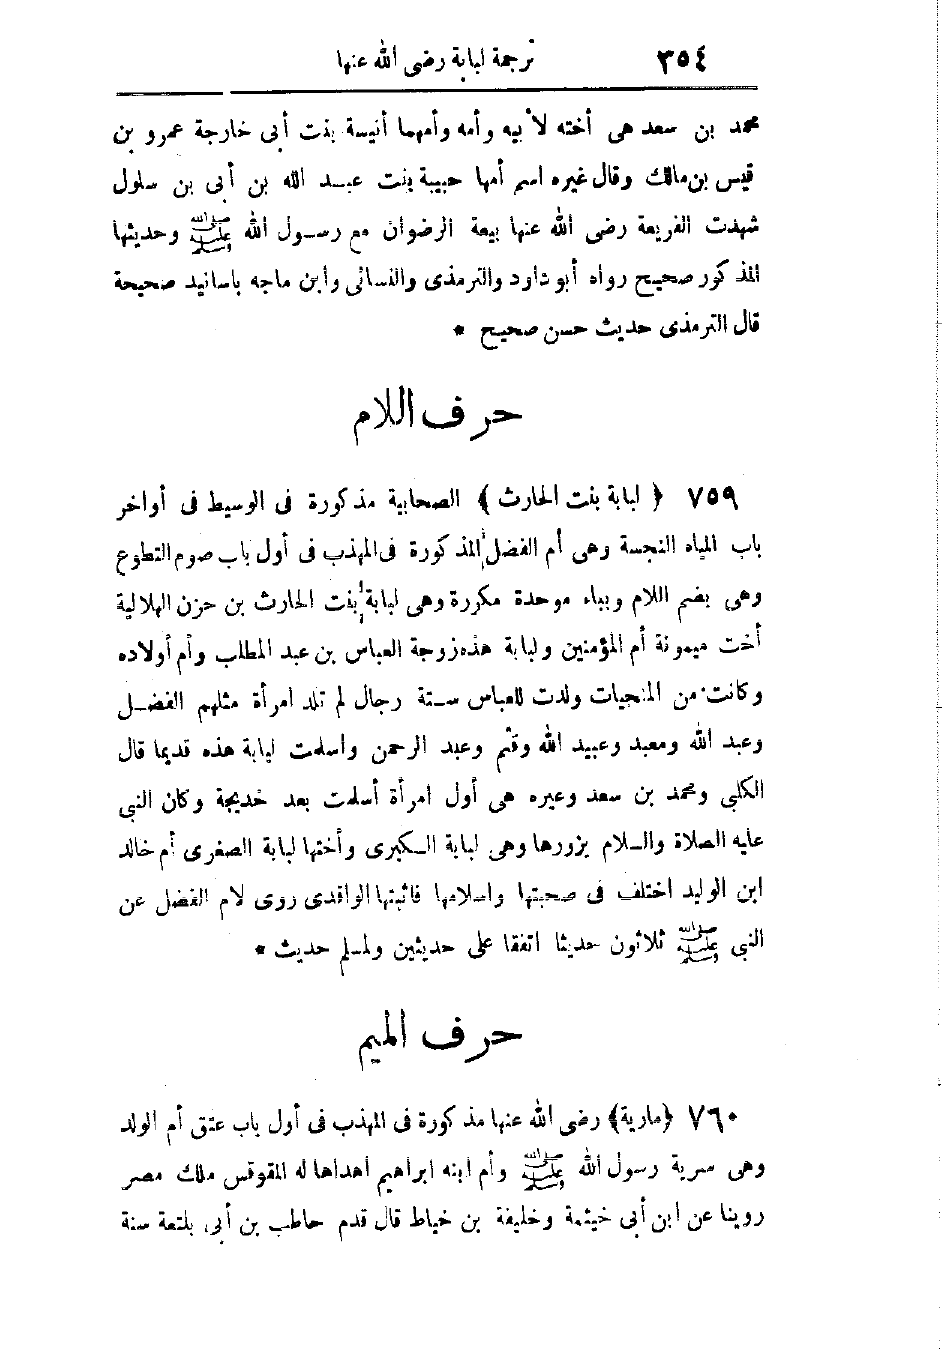 ٣٥٤ ترجمة لبابة رضى الله عنها
محمد بن سعد هى أخته لأبيه وأمه وأمهما أنيسة بنت أبى خارجة عمرو بن
قيس بن مالك وقال غيره اسم أمها حبيبة بنت عبد الله بن أبى بن سلول
شهدت الفريعة رضى الله عنها بيعة الرضوان مع رسول الله ﷺ وحديثها
المذكور صحيح رواه أبو داود والترمذى والنسائى وابن ماجه باسانيد صحيحة
قال الترمذى حديث حسن صحيح *
حرف اللام
٧٥٩ ﴿ لبابة بنت الحارث ﴾ الصحابية مذكورة فى الوسيط فى أواخر
باب المياه النجسة وهى أم الفضل المذكورة فى المهذب فى أول باب صوم التطوع
وهى بضم اللام وبباء موحدة مكررة وهى لبابة بنت الحارث بن حزن الهلالية
أخت ميمونة أم المؤمنين ولبابة هذه زوجة العباس بن عبد المطلب وأم أولاده
وكانت من المنجبات ولدت للعباس ستة رجال لم تلد امرأة مثلهم الفضل
وعبد الله ومعبد وعبيد الله وقثم وعبد الرحمن واسلمت لبابة هذه قديما قال
الكلبي ومحمد بن سعد وغيره هى أول امرأة أسلمت بعد خديجة وكان النبى
عليه الصلاة والسلام يزورها وهى لبابة الكبرى وأختها لبابة الصغرى أم خالد
ابن الوليد اختلف فى صحبتها واسلامها فاثبتها الواقدى روى لام الفضل عن
النبى ﷺ ثلاثون حديثا اتفقا على حديثين ولمسلم حديث *
حرف الميم
٧٦٠ ﴿مارية﴾ رضى الله عنها مذكورة فى المهذب فى أول باب عتق أم الولد
وهى سرية رسول الله ﷺ وأم ابنه ابراهيم اهداها له المقوقس ملك مصر
روينا عن ابن أبى خيثمة وخليفة بن خياط قال قدم حاطب بن أبى بلتعة سنة